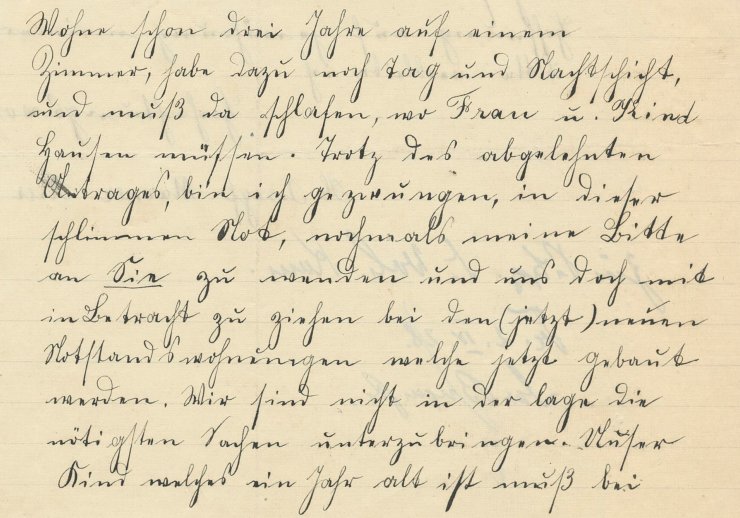 Wohne schon drei Jahre auf einem
Zimmer, habe dazu noch Tag und Nachtschicht,
und muß da schlafen, wo Frau u. Kind
Hausen müssen. Trotz des abgelehnten
Antrages, bin ich gezwungen, in dieser
schlimmen Not, nochmals meine Bitte
an Sie zu wenden und uns doch mit
in Betracht zu ziehen bei den (jetzt) neuen
Notstandswohnungen welche jetzt gebaut
werden. Wir sind nicht in der lage die
nötigsten Sachen unterzubringen. Unser
Kind welches ein Jahr alt ist muß bei